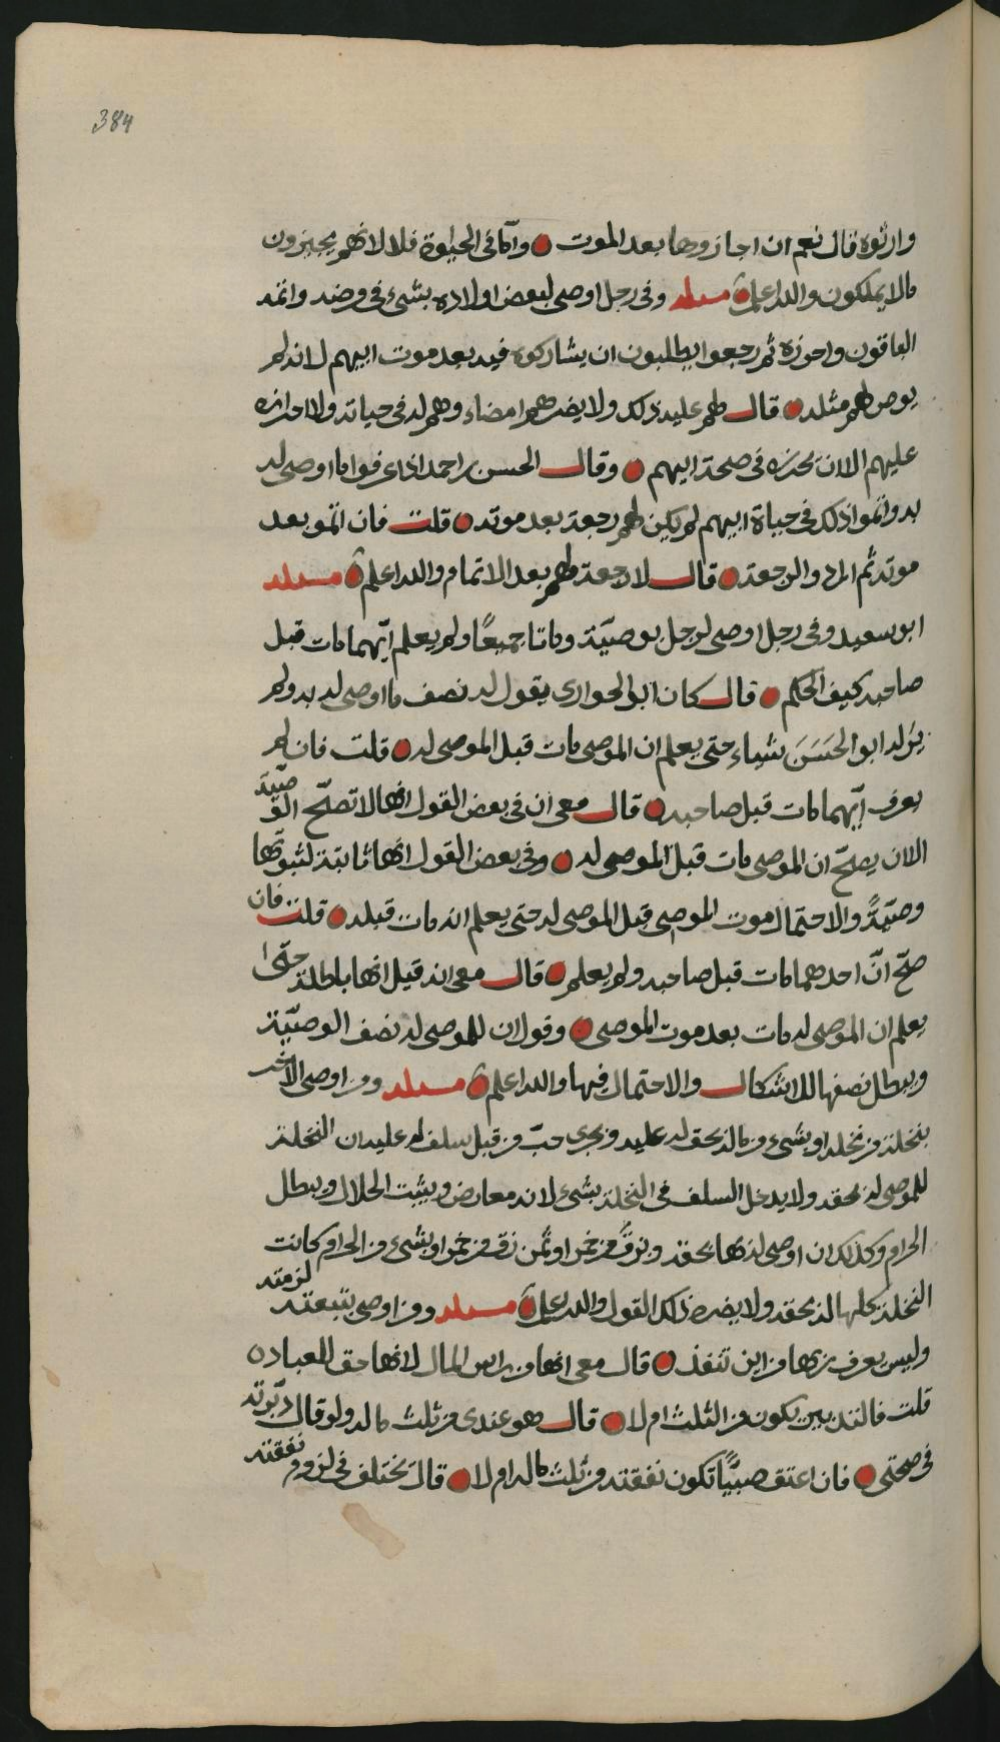 384
وارثوه قال نعم ان اجازوها بعد الموت واما في الحيوة فلا لانهم يجيزون
مالا يملكون والله اعلم مسئلة وفي رجل اوصى لبعض اولاده بشيء في مرضه واتمه
الباقون واحرزه ثم رجعوا يطلبون ان يشاركوه فيه بعد موت ابيهم لانه لم
يوص لهم مثله قال لهم عليه ذلك ولا يضرهم امضاءوهم له في حياته ولا احرازه
عليهم الا ان يحرزه في صحة ابيهم وقال الحسن بن احمد اذا عرفوا ما اوصى له
به واتموا ذلك في حياة ابيهم لم يكن لهم رجعة بعد موته قلت فان اتموا بعد
موته ثم ارادوا الرجعة قال لا رجعة لهم بعد الاتمام والله اعلم مسئلة
ابو سعيد وفي رجل اوصى لرجل بوصيّة وماتا جميعًا ولم يعلم ايّهما مات قبل
صاحبه كيف الحكم قال كان ابو الحواري يقول له نصف ما اوصى له به ولم
ير له ابو الحَسَنَ شياء حتى يعلم ان الموصي مات قبل الموصى له قلت فان لم
يعرف ايّهما مات قبل صاحبه قال معي ان في بعض القول انها لا تصحّ الوصيّة
الا ان يصحّ ان الموصي مات قبل الموصى له وفي بعض القول انها ثابتة لثبوتها
وصيّةً والاحتمال موت الموصي قبل الموصى له حتى يعلم انه مات قبله قلت فان
صحّ انّ احدهما مات قبل صاحبه ولم يعلم قال معي انه قيل انها باطلة حتّى
يعلم ان الموصى له مات بعد موت الموصي وقول ان للموصى له نصف الوصيّة
ويبطل نصفها للاشكال والاحتمال فيها والله اعلم مسئلة ومن اوصى لآخر
بنخلة من نخله او بشيء من ماله بحق له عليه وبجري حبّ من قبل سلف له عليه ان النخلة
للموصى له بحقه ولا يدخل السلف في النخلة بشيء لانه معارض ويثبت الحلال ويبطل
الحرام وكذلك ان اوصى له بها بحقه وبزقّ من خمر او ثمن زق من خمر او بشيء من الحرام كانت
النخلة كلها له بحقه ولا يضره ذلك القول والله اعلم مسئلة ومن اوصى بتبعة لزمته
وليس يعرف ربها من اين تنفذ قال معي انها من راس المال لانها حق للعباد ه
قلت فالتدبير يكون من الثلث ام لا قال هو عندي من ثلث ماله ولو قال دبّرته
في صحتي فان اعتق صبيًّا تكون نفقته من ثلث ماله ام لا قال يختلف في لزوم نفقته